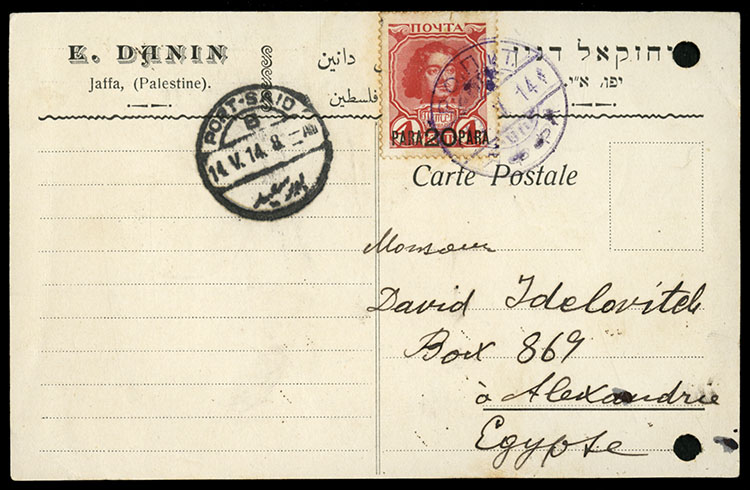 E. DANIN
Jaffa, (Palestine).
دانين
فلسطين
יחזקאל דנין
יפו, א״י.
ПОЧТА
PARA 20 PARA
PORT-SAID
14.V.14.8
بورسعيد
14
Carte Postale
Monsieur
David Idelovitch
Box 869
à Alexandrie
Egypte